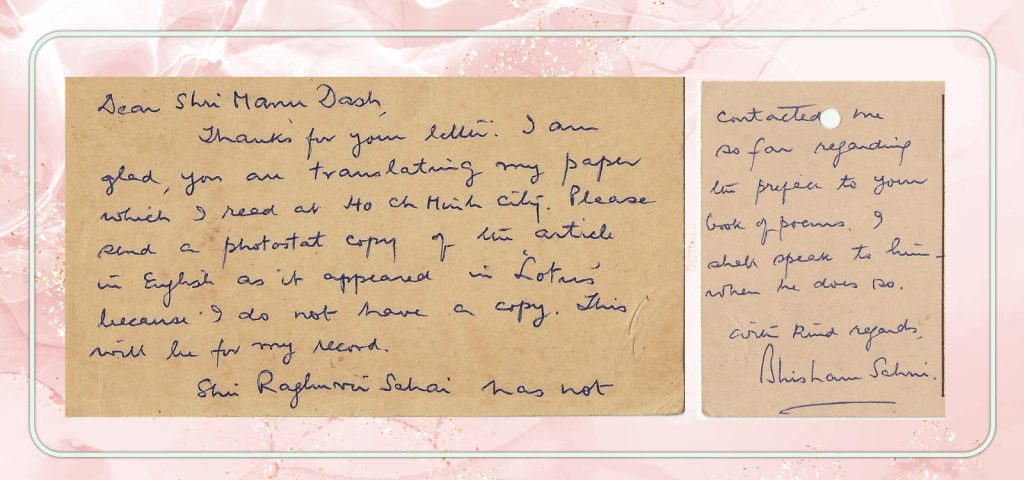 Dear Shri Manu Dash,
Thanks for your letter. I am
glad, you are translating my paper
which I read at Ho Ch Minh City. Please
send a photostat copy of the article
in English as it appeared in 'Lotus'
because I do not have a copy. This
will be for my record.
Shri Raghuvir Sahai has not
contacted me
so far regarding
the preface to your
book of poems. I
shall speak to him
when he does so.
With kind regards,
Bhisham Sahni.